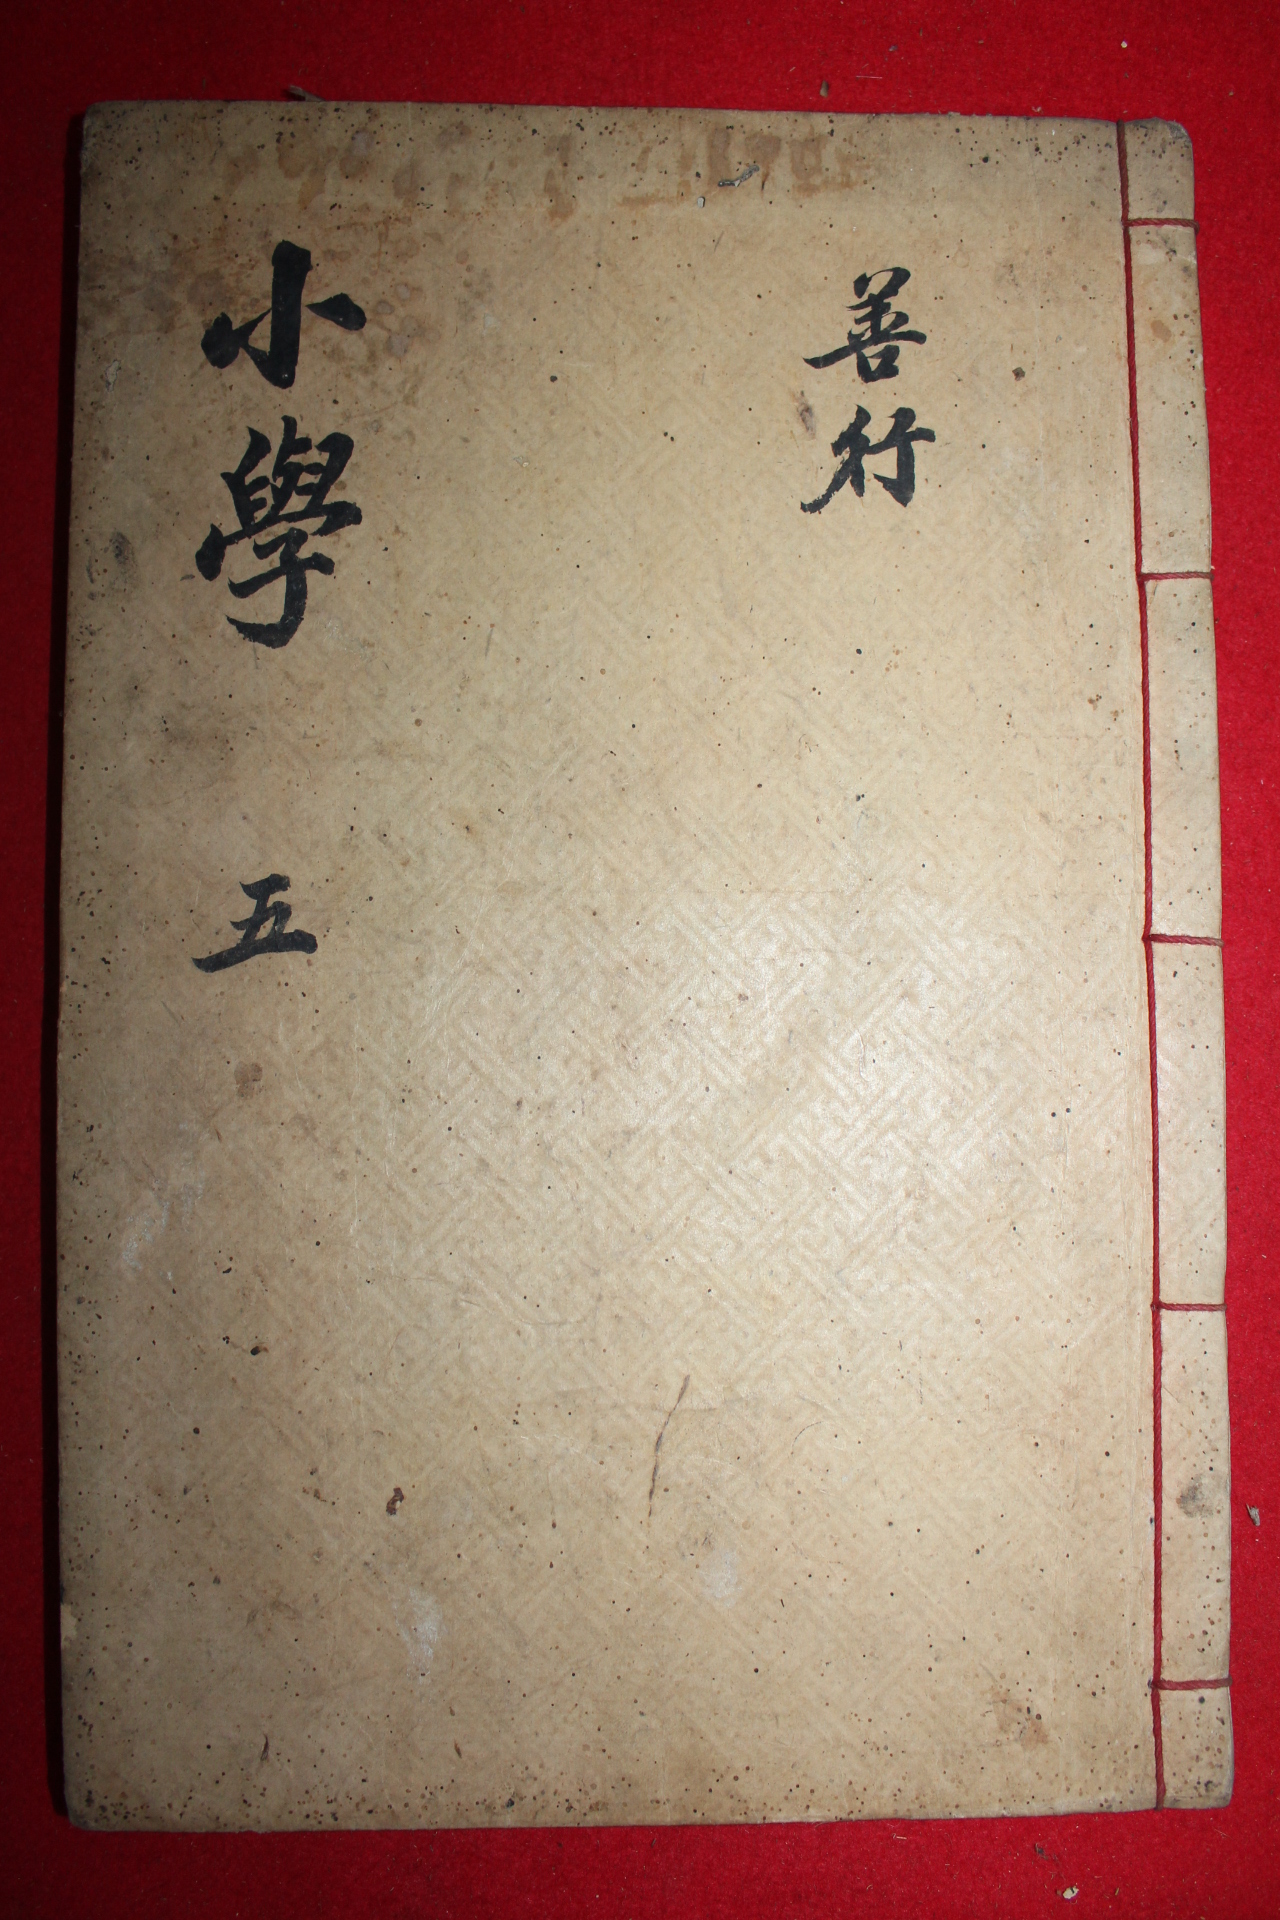 善行
小學 五